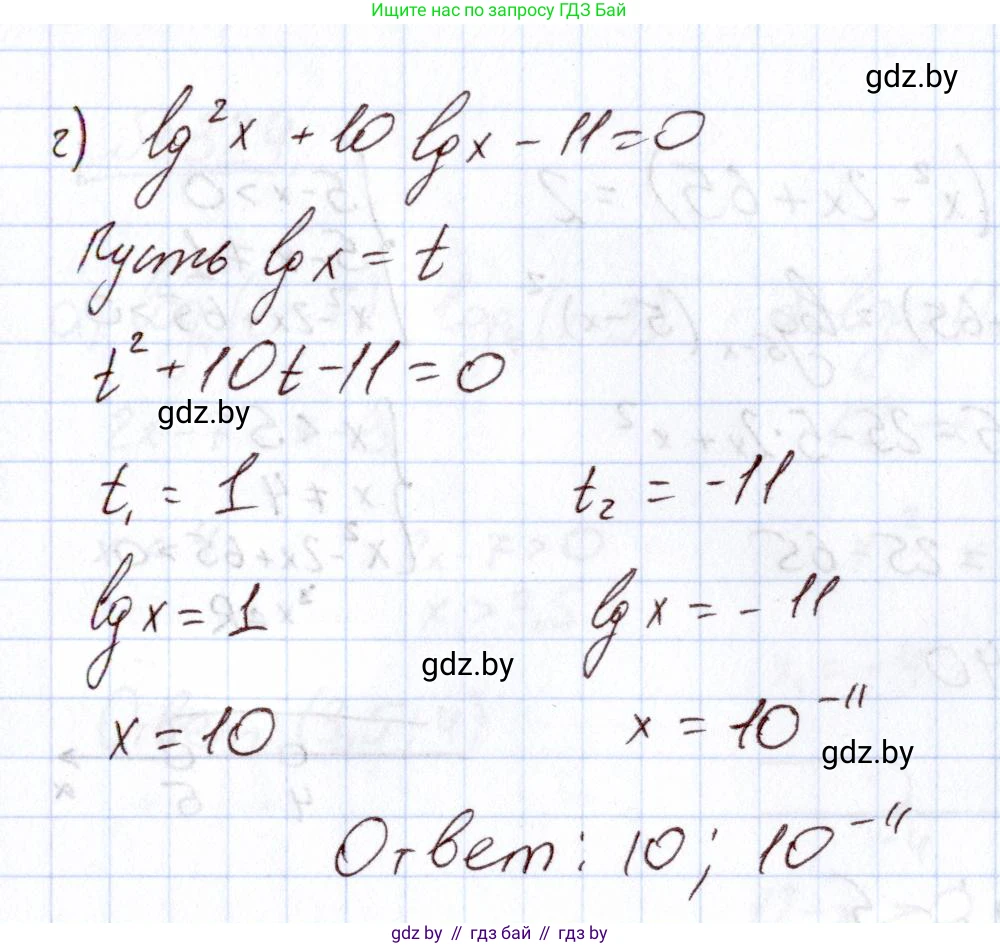 Ищите нас по запросу ГДЗ Бай
gdz.by
г) lg²x + 10 lgx - 11 = 0
Пусть lgx = t
t² + 10t - 11 = 0
gdz.by
t₁ = 1 t₂ = -11
lgx = 1 lgx = -11
gdz.by
x = 10 x = 10⁻¹¹
gdz.by
Ответ: 10; 10⁻¹¹
gdz.by // гдз бай // гдз by